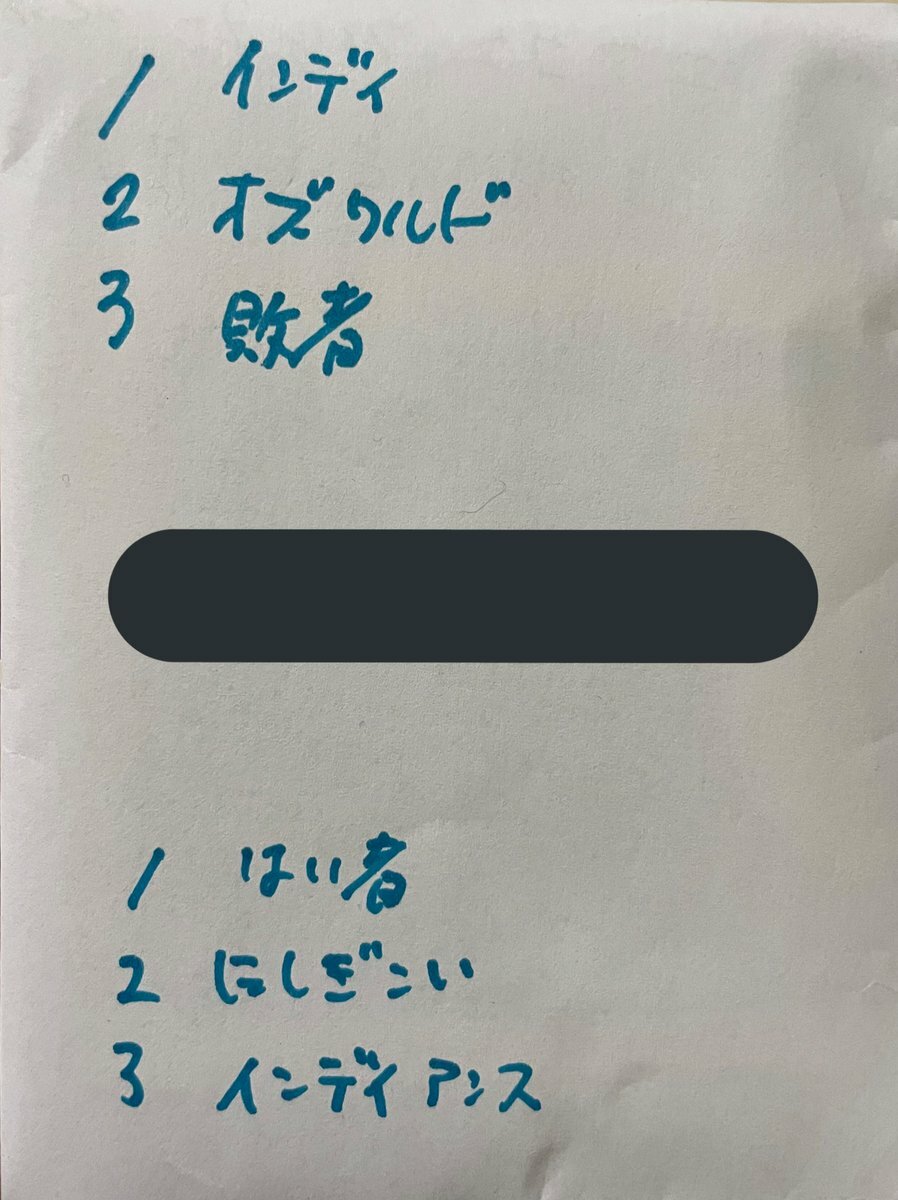 1 インディ
2 オズワルド
3 敗者
1 はい者
2 にしぎこい
3 インディアンス